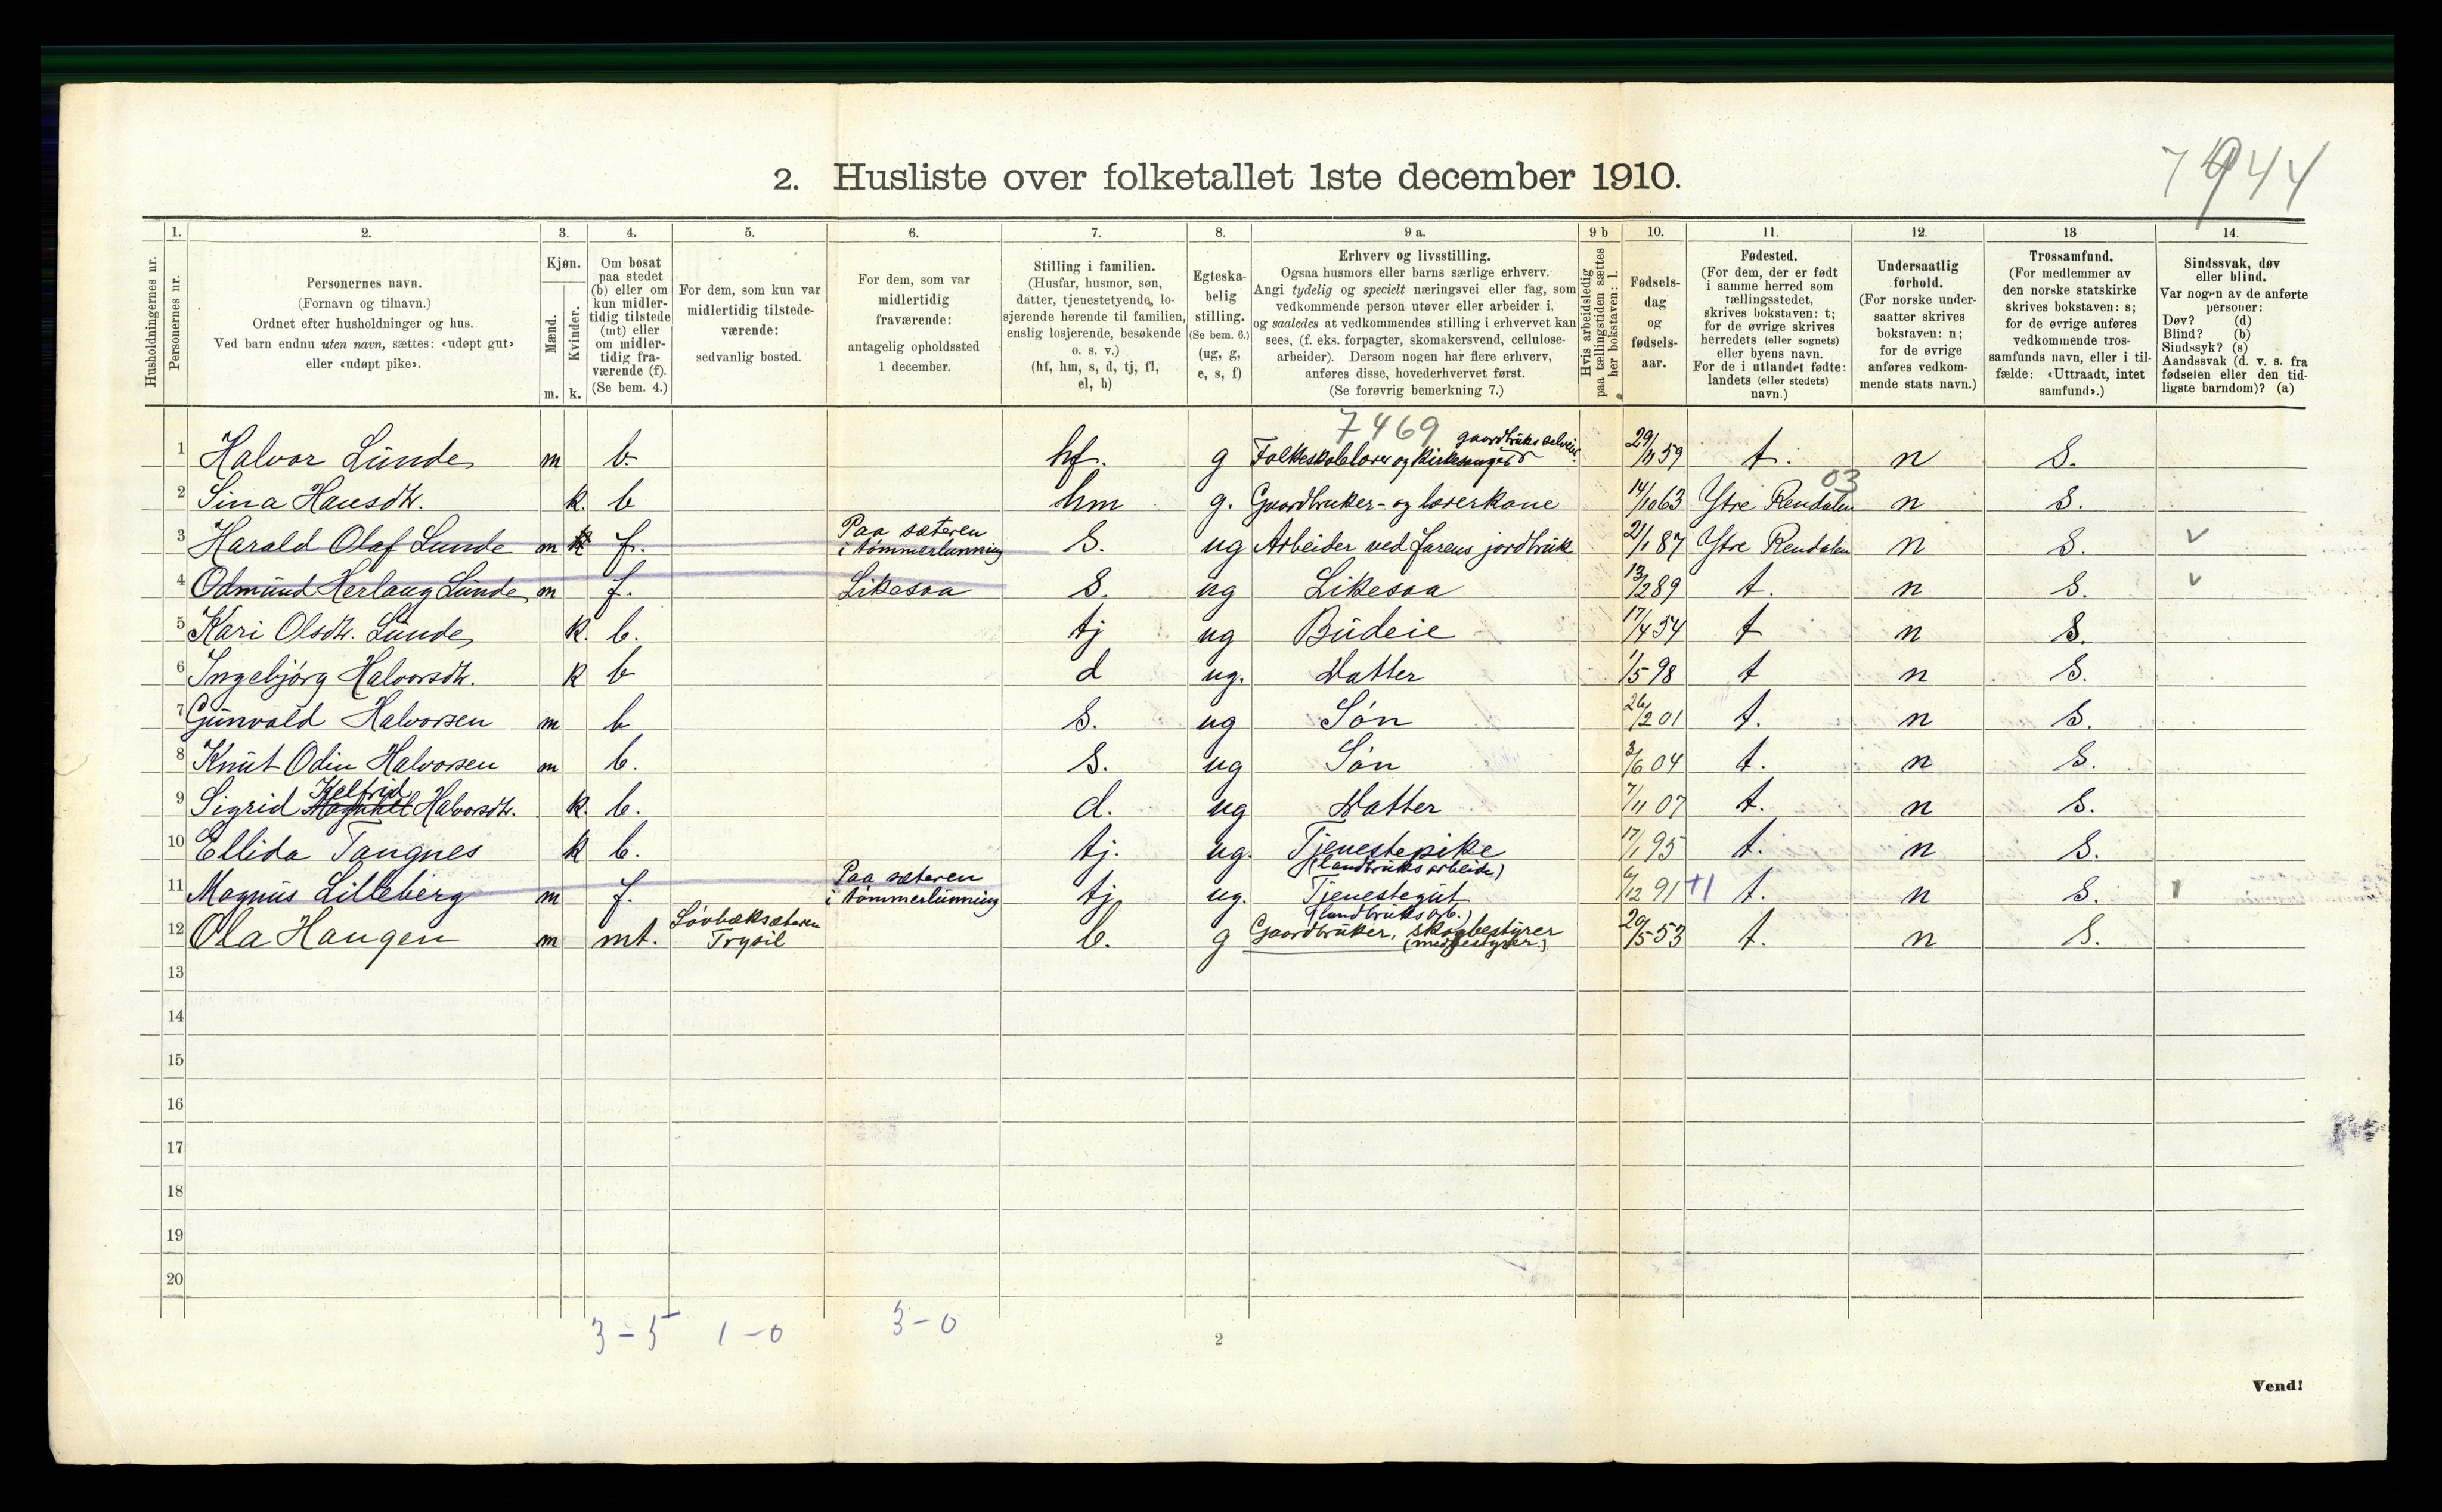 7944
2. Husliste over folketallet 1ste december 1910.
Husholdningernes nr.
1.
Personernes nr.
2.
Personernes navn.
(Fornavn og tilnavn.)
Ordnet efter husholdninger og hus.
Ved barn endnu uten navn, sættes: «udøpt gut»
eller «udøpt pike».
3.
Kjøn.
Mænd.
Kvinder.
m. k.
4.
Om bosat
paa stedet
(b) eller om
kun midler-
tidig tilstede
(mt) eller
om midler-
tidig fra-
værende (f).
(Se bem. 4.)
5.
For dem, som kun var
midlertidig tilstede-
værende:
sedvanlig bosted.
6.
For dem, som var
midlertidig
fraværende:
antagelig opholdssted
1 december.
7.
Stilling i familien.
(Husfar, husmor, søn,
datter, tjenestetyende, lo-
sjerende hørende til familien,
enslig losjerende, besøkende
o. s. v.)
(hf, hm, s, d, tj, fl,
el, b)
8.
Egteska-
belig
stilling.
(Se bem. 6.)
(ug, g,
e, s, f)
9 a.
Erhverv og livsstilling.
Ogsaa husmors eller barns særlige erhverv.
Angi tydelig og specielt næringsvei eller fag, som
vedkommende person utøver eller arbeider i,
og saaledes at vedkommendes stilling i erhvervet kan
sees, (f. eks. forpagter, skomakersvend, cellulose-
arbeider). Dersom nogen har flere erhverv,
anføres disse, hovederhvervet først.
(Se forøvrig bemerkning 7.)
9 b
Hvis arbeidsledig
paa tællingstiden sættes
her bokstaven: l.
10.
Fødsels-
dag
og
fødsels-
aar.
11.
Fødested.
(For dem, der er født
i samme herred som
tællingsstedet,
skrives bokstaven: t;
for de øvrige skrives
herredets (eller sognets)
eller byens navn.
For de i utlandet fødte:
landets (eller stedets)
navn.)
12.
Undersaatlig
forhold.
(For norske under-
saatter skrives
bokstaven: n;
for de øvrige
anføres vedkom-
mende stats navn.)
13
Trossamfund.
(For medlemmer av
den norske statskirke
skrives bokstaven: s;
for de øvrige anføres
vedkommende tros-
samfunds navn, eller i til-
fælde: «Uttraadt, intet
samfund».)
14.
Sindssvak, døv
eller blind.
Var nogen av de anførte
personer:
Døv? (d)
Blind? (b)
Sindssyk? (s)
Aandssvak (d. v. s. fra
fødselen eller den tid-
ligste barndom)? (a)
7469
1 Halvor Lunde m b. hf. g Folkeskolelærer og Kirkesanger gaardbruks selveier 29/11 59 t. n S.
03
2 Sina Hansdtr. k. b hm g. Gaardbruker- og lærerkone 14/10 63 Ytre Rendalen n S.
3 Harald Olaf Lunde m k f. Paa sæteren i tømmerlunning S. ug Arbeider ved farens jordbruk 21/1 87 Ytre Rendalen n S. v
4 Odmund Herlaug Lunde m f. Likesaa S. ug Likesaa 13/2 89 t. n S. v
5 Kari Olsdtr. Lunde k. b. tj ug Budeie 17/4 54 t n S.
6 Ingebjörg Halvorsdtr. k b d ug. Datter 1/5 98 t n S.
7 Gunvald Halvorsen m b S. ug Sön 26/2 01 t. n S.
8 Knut Odin Halvorsen m b. S. ug Sön 3/6 04 t. n S.
9 Sigrid Kelfrid Halvorsdtr. k. b. d. ug Datter 7/11 07 t. n S.
10 Ellida Tangnes k b. tj. ug. Tjenestepike (landbruksarbeide) 17/1 95 t. n S.
11 Magnus Lilleberg m f. Paa sæteren i tömmerlunning tj. ug. Tjenestegut (landbruks arb.) 6/12 91 +1 t. n S.
12 Ola Haugen m mt. Lövbæksæteren Trysil b. g Gaardbruker, skogbestyrer (medbestyrer) 29/5 53 t. n S.
13
14
15
16
17
18
19
20
3-5 1-0 3-0
2
Vend!